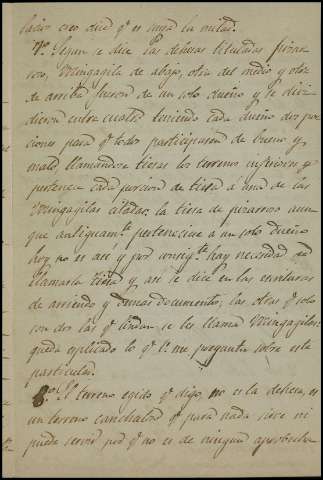 lacio creo dice qe es suya la mitad.
7o. Segun se dice las dehesas tituladas pizar
roso, Mingagila de abajo, otra del medio y otra
de arriba fueron de un solo dueño y se divi
dieron entre cuatro teniendo cada dueño dos por
ciones para qe todos participasen de bueno y
malo llamandose tiesas los terrenos inferiores y
pertenece cada porcion de tiesa a una de las
Mingagilas citadas, la tiesa de pizarroso aun
que antiguamte. perteneciese a un solo dueño
hoy no es asi y por consigte. hay necesidad de
llamarla tiesa y asi se dice en las escrituras
de arriendo y demas documentos, las otras qe solo
son dos las qe lindan se les llama Mingagilas:
queda esplicado lo qe V. me pregunta sobre este
particular.
8o. El terreno egido qe digo, no es la dehesa, es
un terreno canchaloso qe para nada sirve ni
puede servir pr. qe no es de ningun aprovecha